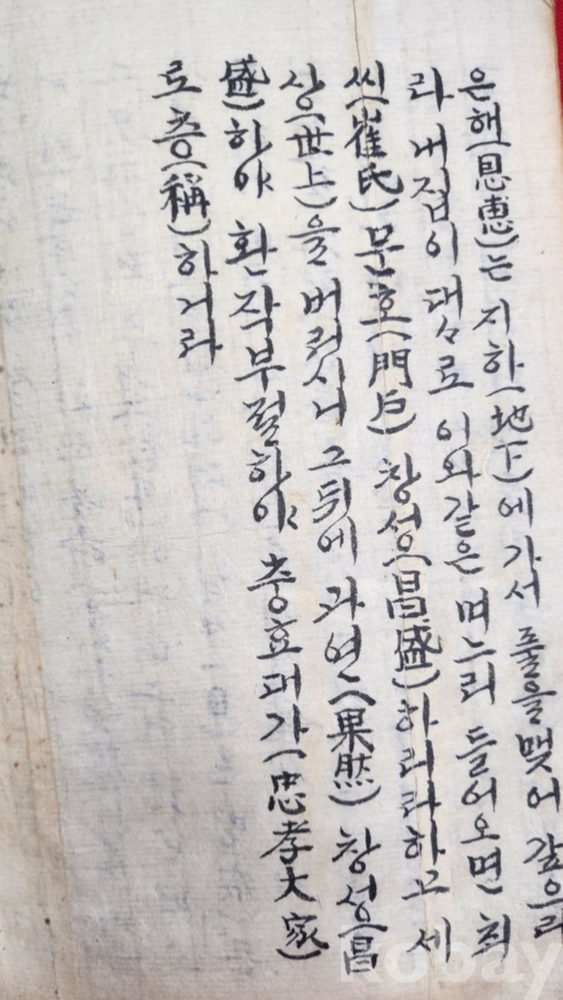 은해(恩惠)는 지하(地下)에 가서 풀을 맺어 갚으리
라 내집이 대々로 이와같은 며느리 들어오면 최
씨(崔氏) 문호(門戶) 창성(昌盛)하리라하고 세
상(世上)을 버렷시니 그뒤에 과연(果然) 창성(昌
盛)하야 환작부절하야 충효대가(忠孝大家)
로 층(稱)하거라
kobay